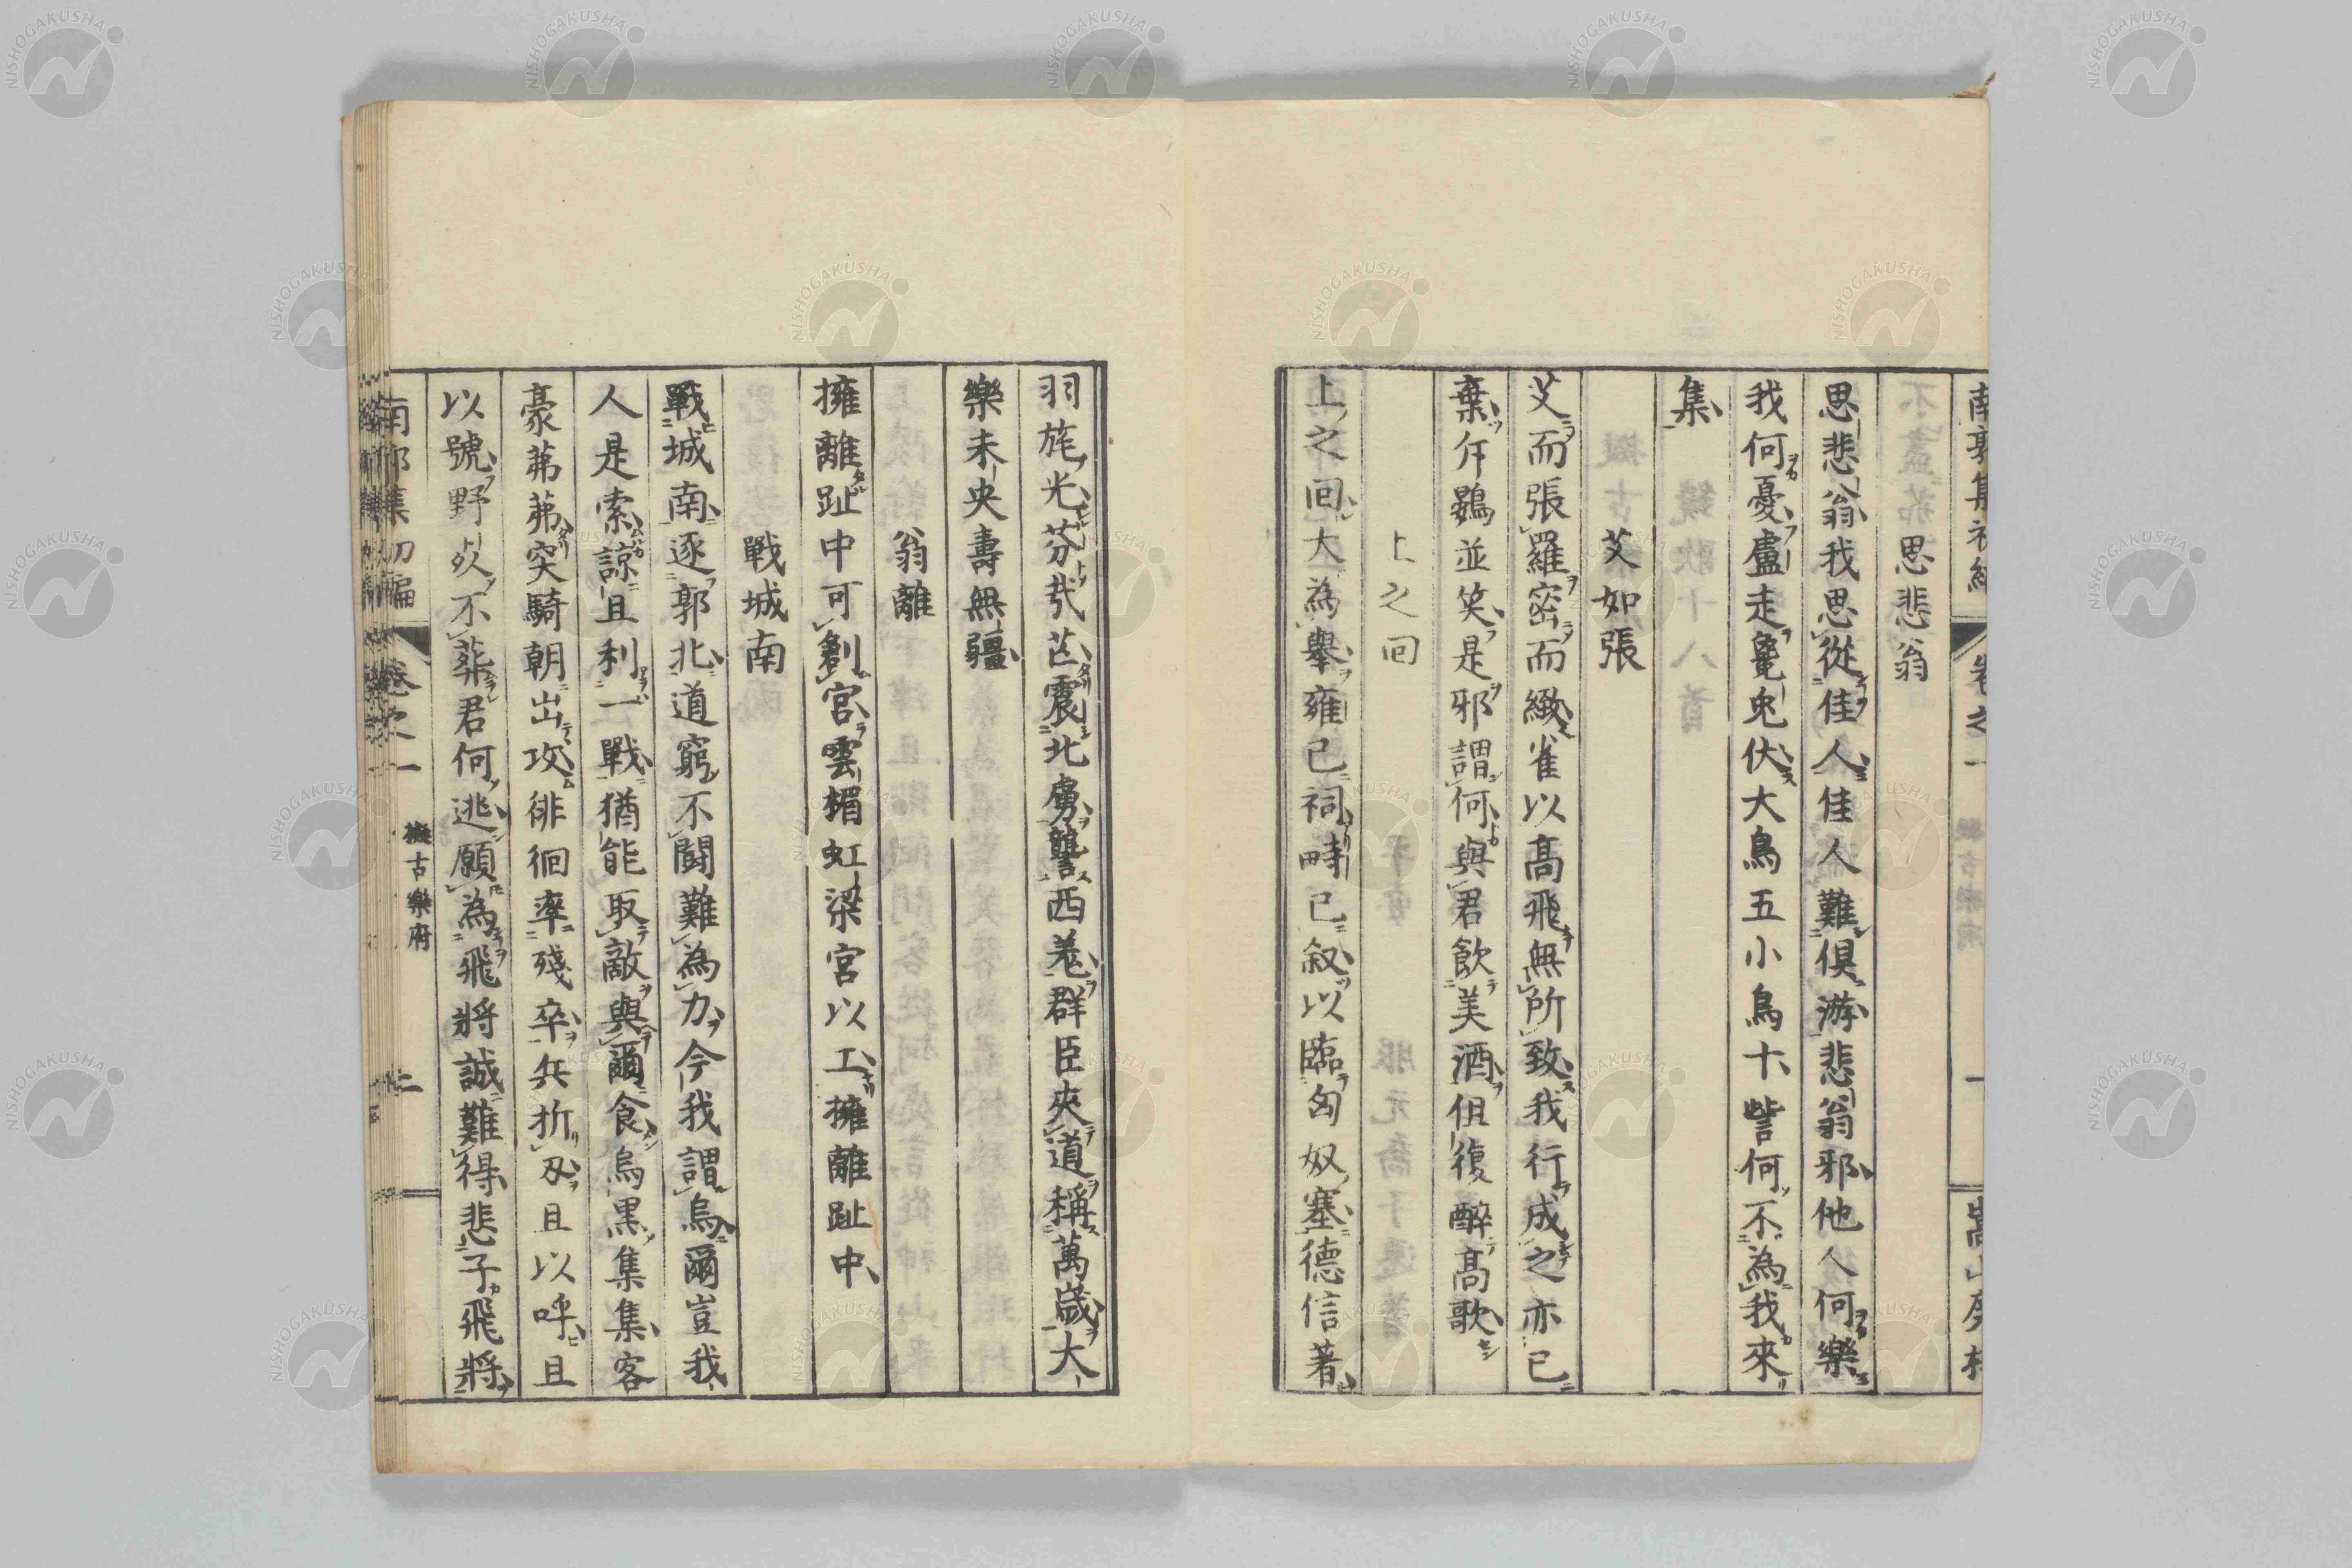 思悲翁
思悲翁我思從佳人佳人難俱游悲翁邪他人何樂
我何憂盧走㲋兎伏大鳥五小鳥十訾何不為我來
集
艾如張
艾而張羅密而緻雀以高飛無所致我行成之亦已
棄斥鷃並笑是邪謂何與君飲美酒但復醉高歌
上之回
上之回大為舉雍已祠畤已叙以臨匈奴塞德信著
羽旄光芬哉芒震北虜讋西羌群臣夾道稱萬歳大
樂未央壽無疆
翁離
擁離趾中可創宮雲楣虹梁宮以工擁離趾中
戰城南
戰城南逐郭北道窮不闘難為力今我謂烏爾豈我
人是索諒且利一戰猶能取敵與爾食烏黒集集客
豪茀茀突騎朝出攻徘徊率殘卒兵折刄且以呼且
以號野死不葬君何逃願為飛將誠難得悲子飛將
南郭集初編 卷之一 擬古樂府 二
NISHOGAKUSHA